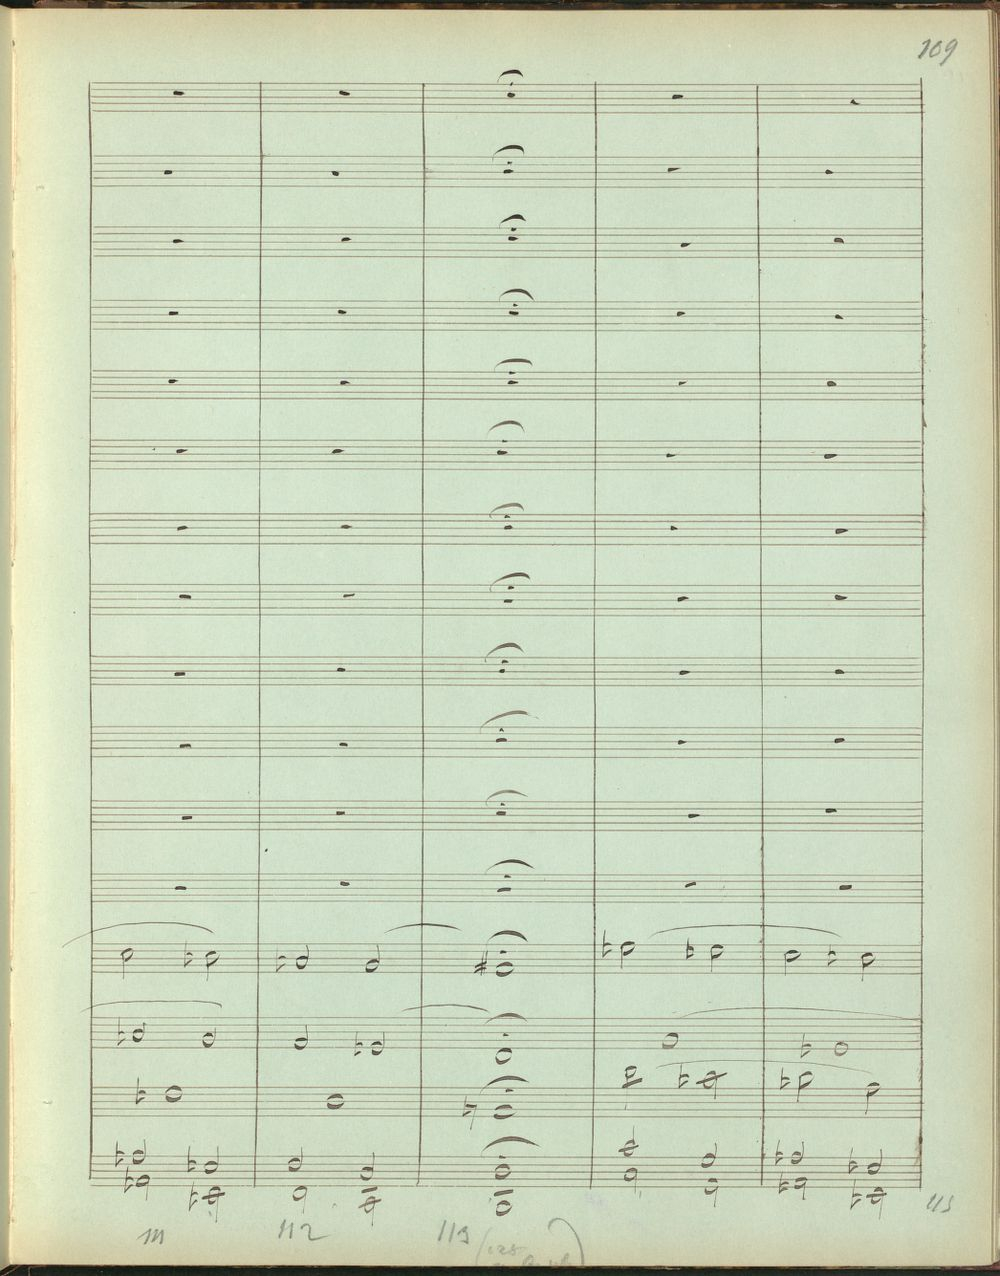 109
111 112 113 115